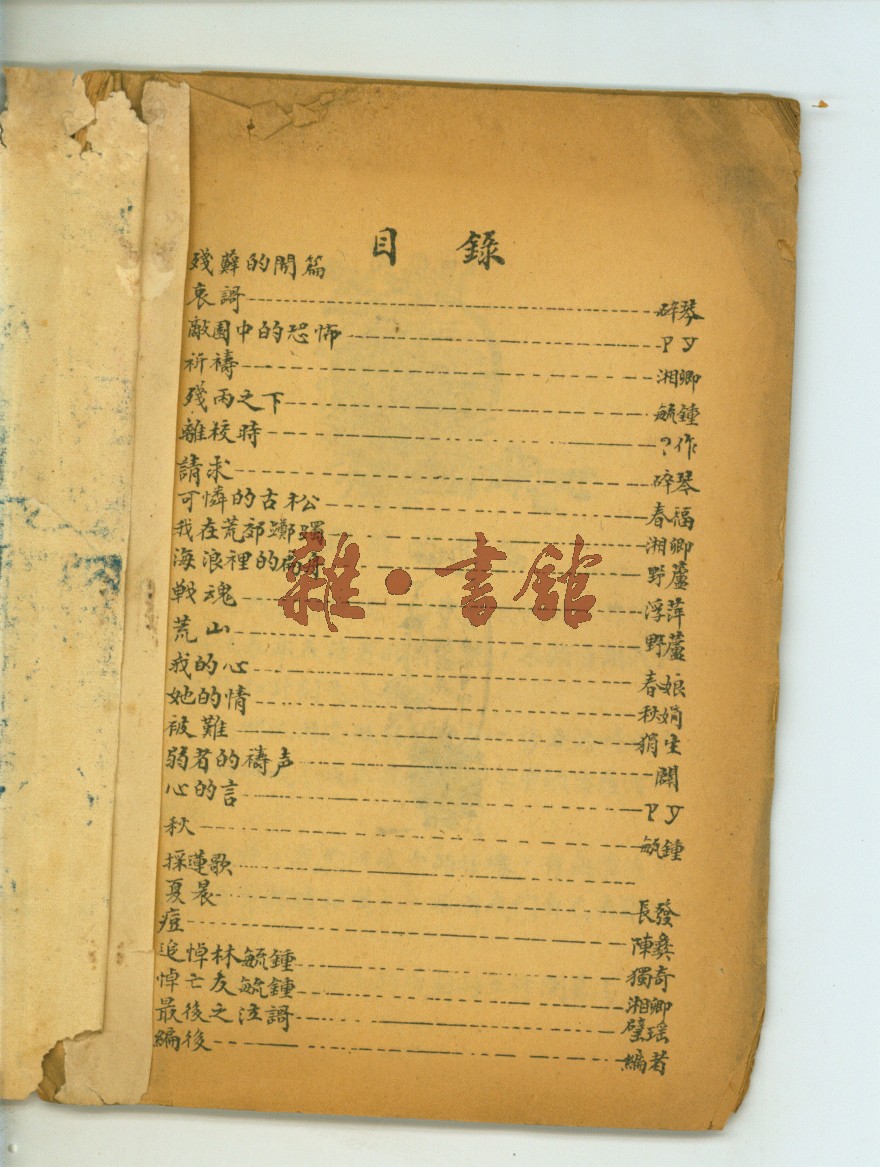 目 錄
殘蘚的開篇
哀謌 碎琴
敵圍中的恐怖 P Y
祈禱 湘卿
殘雨之下 毓鍾
離校時 ?作
請求 碎琴
可憐的古松 春福
我在荒郊躑躅 湘卿
海浪裡的扁舟 野蘆
戰魂 浮萍
荒山 野蘆
我的心 春娘
她的情 秋娟
被難 狷生
弱者的禱声
心的言 P Y
秋 毓鍾
採蓮歌
夏晨 長發
痘 陳彝
追悼林毓鍾 獨奇
悼亡友毓鍾 湘卿
最後之泣謌 璧瑶
編後 編者
雜·書館